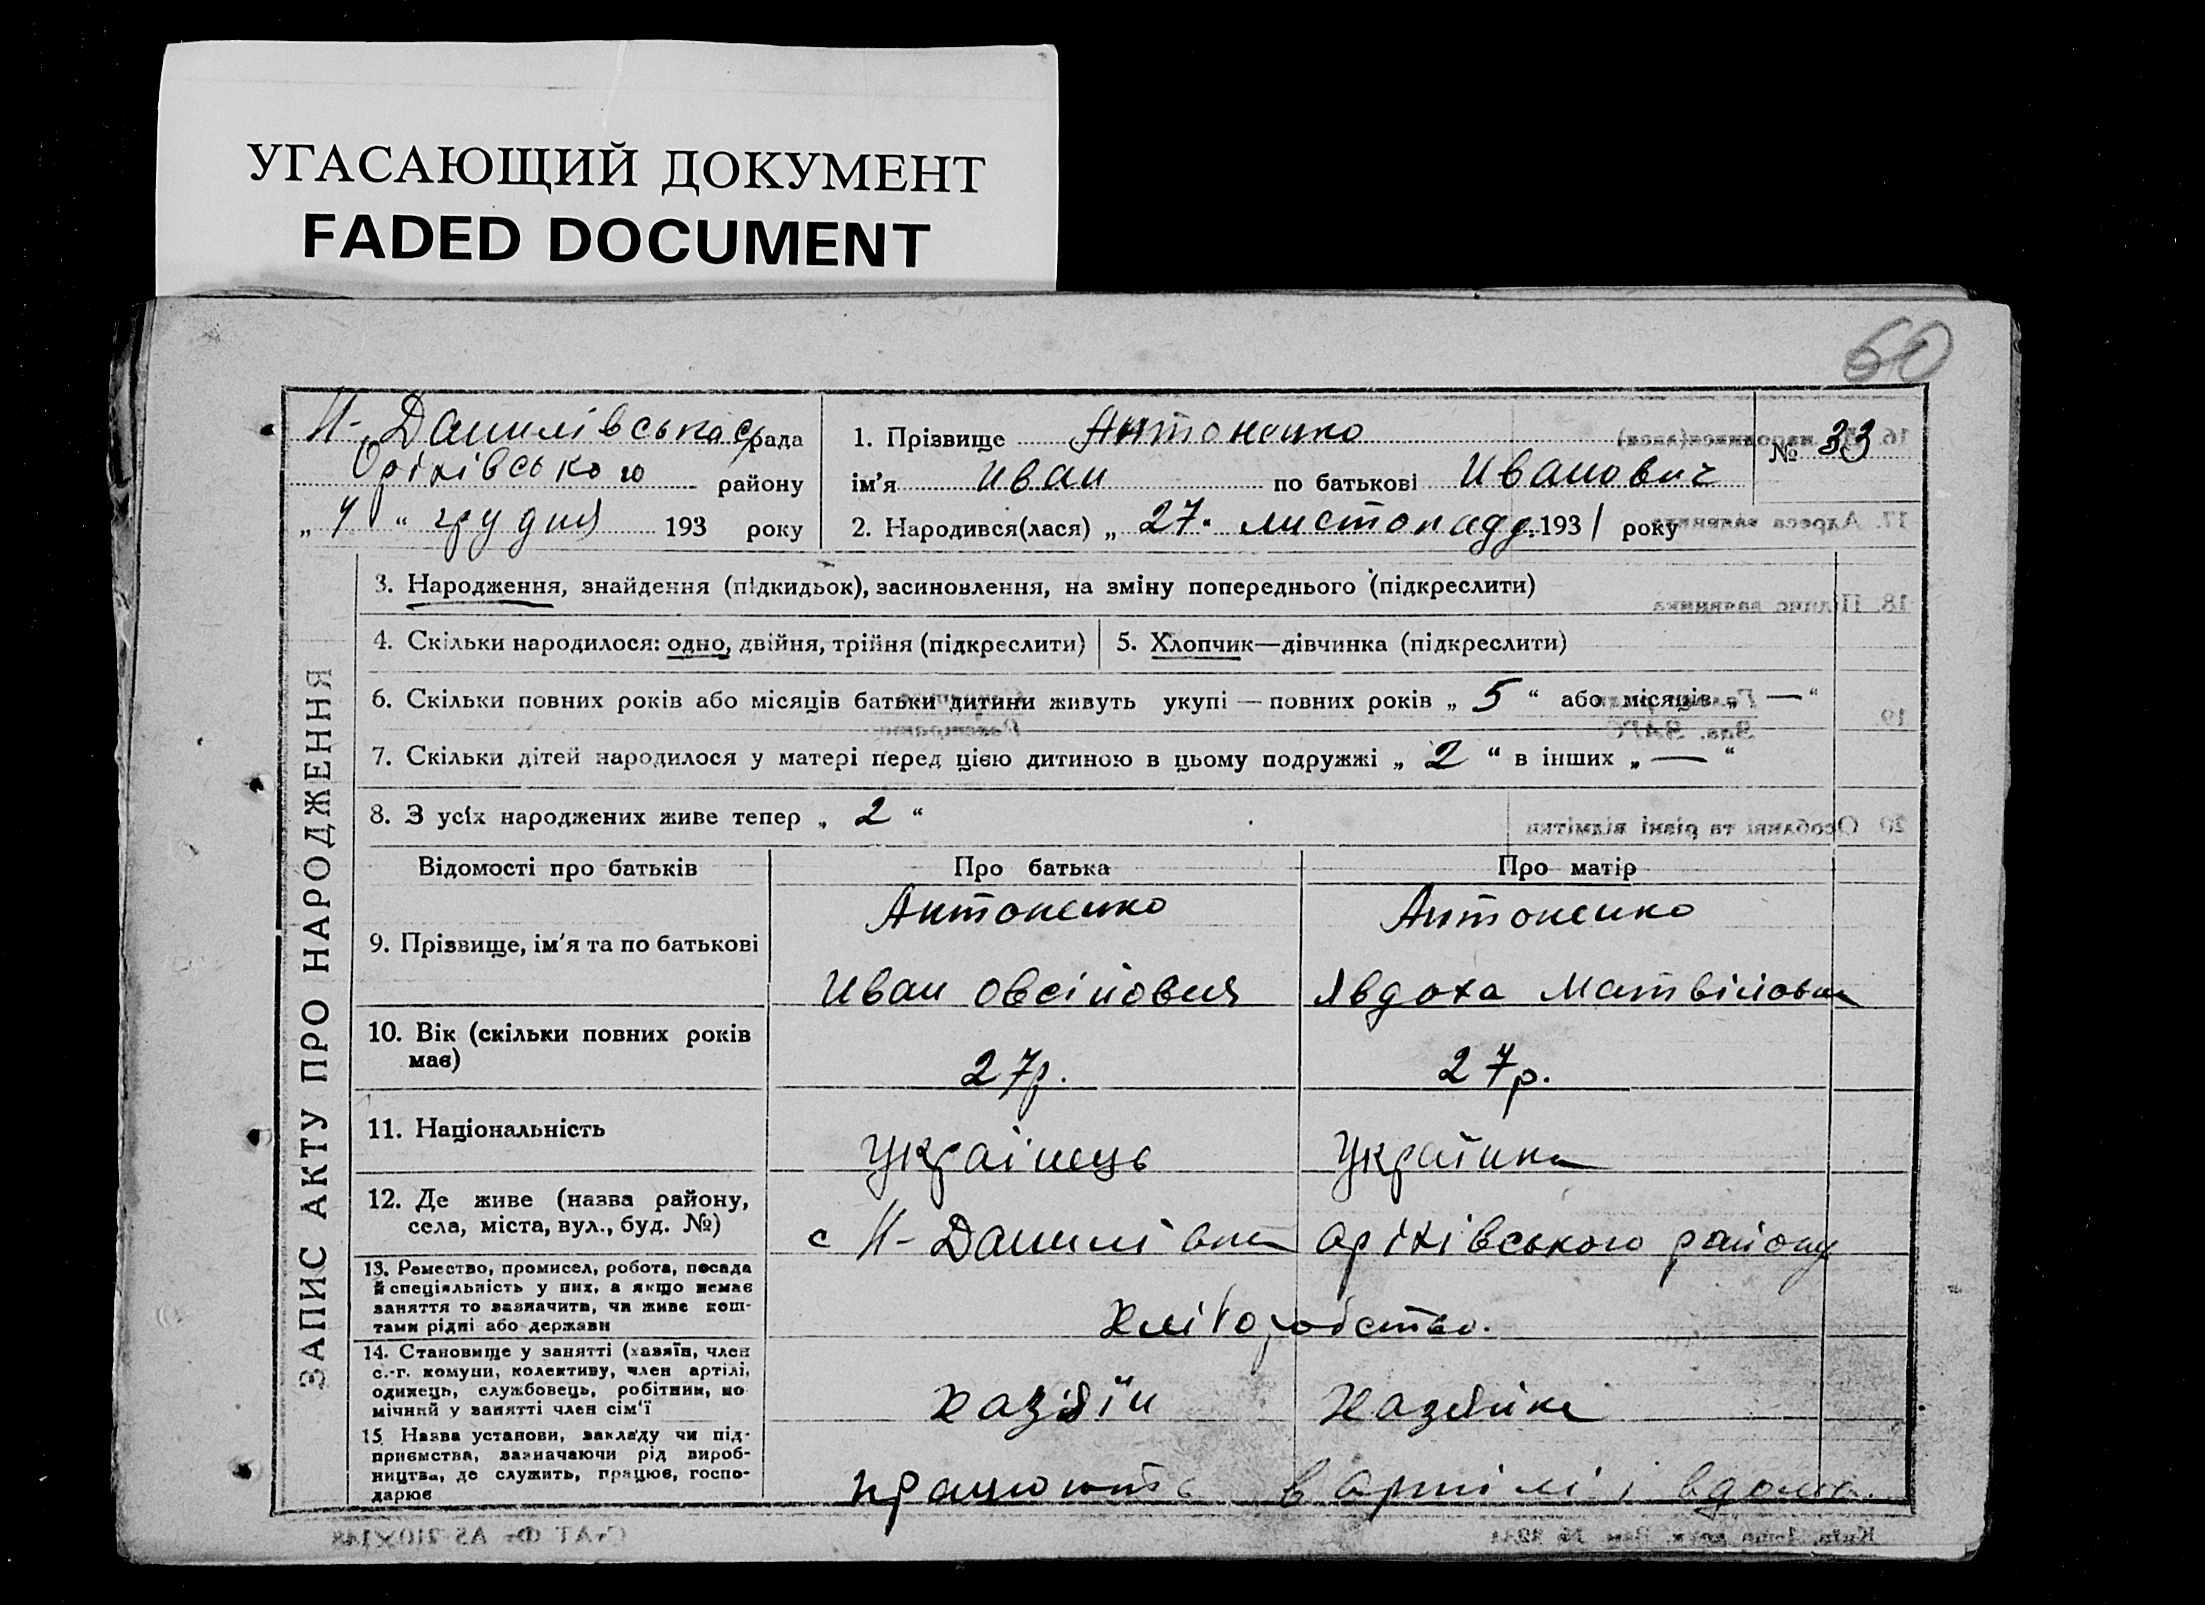 УГАСАЮЩИЙ ДОКУМЕНТ
FADED DOCUMENT
60
ЗАПИС АКТУ ПРО НАРОДЖЕННЯ
Н-Данилівська с/рада
Оріхівського району
„ 4 “ грудня 193 року
1. Прізвище Антоненко
ім'я Иван по батькові Иванович
№ 33
2. Народився(лася) „ 27 “ листопада 1931 року
3. Народження, знайдення (підкидьок), засиновлення, на зміну попереднього (підкреслити)
4. Скільки народилося: одно, двійня, трійня (підкреслити)
5. Хлопчик—дівчинка (підкреслити)
6. Скільки повних років або місяців батьки дитини живуть укупі — повних років „ 5 “ або місяців „ — “
7. Скільки дітей народилося у матері перед цією дитиною в цьому подружжі „ 2 “ в інших „ — “
8. З усіх народжених живе тепер „ 2 “
Відомості про батьків Про батька Про матір
9. Прізвище, ім'я та по батькові
Антоненко Антоненко
Иван Овсійовия Явдоха Матвіївна
10. Вік (скільки повних років
має)
27р. 27р.
11. Національність
Українець Українка
12. Де живе (назва району,
села, міста, вул., буд. №)
с Н-Данилівка Оріхівського району
13. Ремество, промисел, робота, посада
й спеціяльність у них, а якщо немає
заняття то зазначити, чи живе кош-
тами рідні або держави
хліборобство.
14. Становище у занятті (хазяїн, член
с.-г. комуни, колективу, член артілі,
одинець, службовець, робітник, по
мічний у занятті член сім'ї
хазяїн Хазяйка
15. Назва установи, закладу чи під-
приємства, зазначаючи рід вироб-
ництва, де служить, працює, госпо-
дарює
працюють в артілі і вдома.